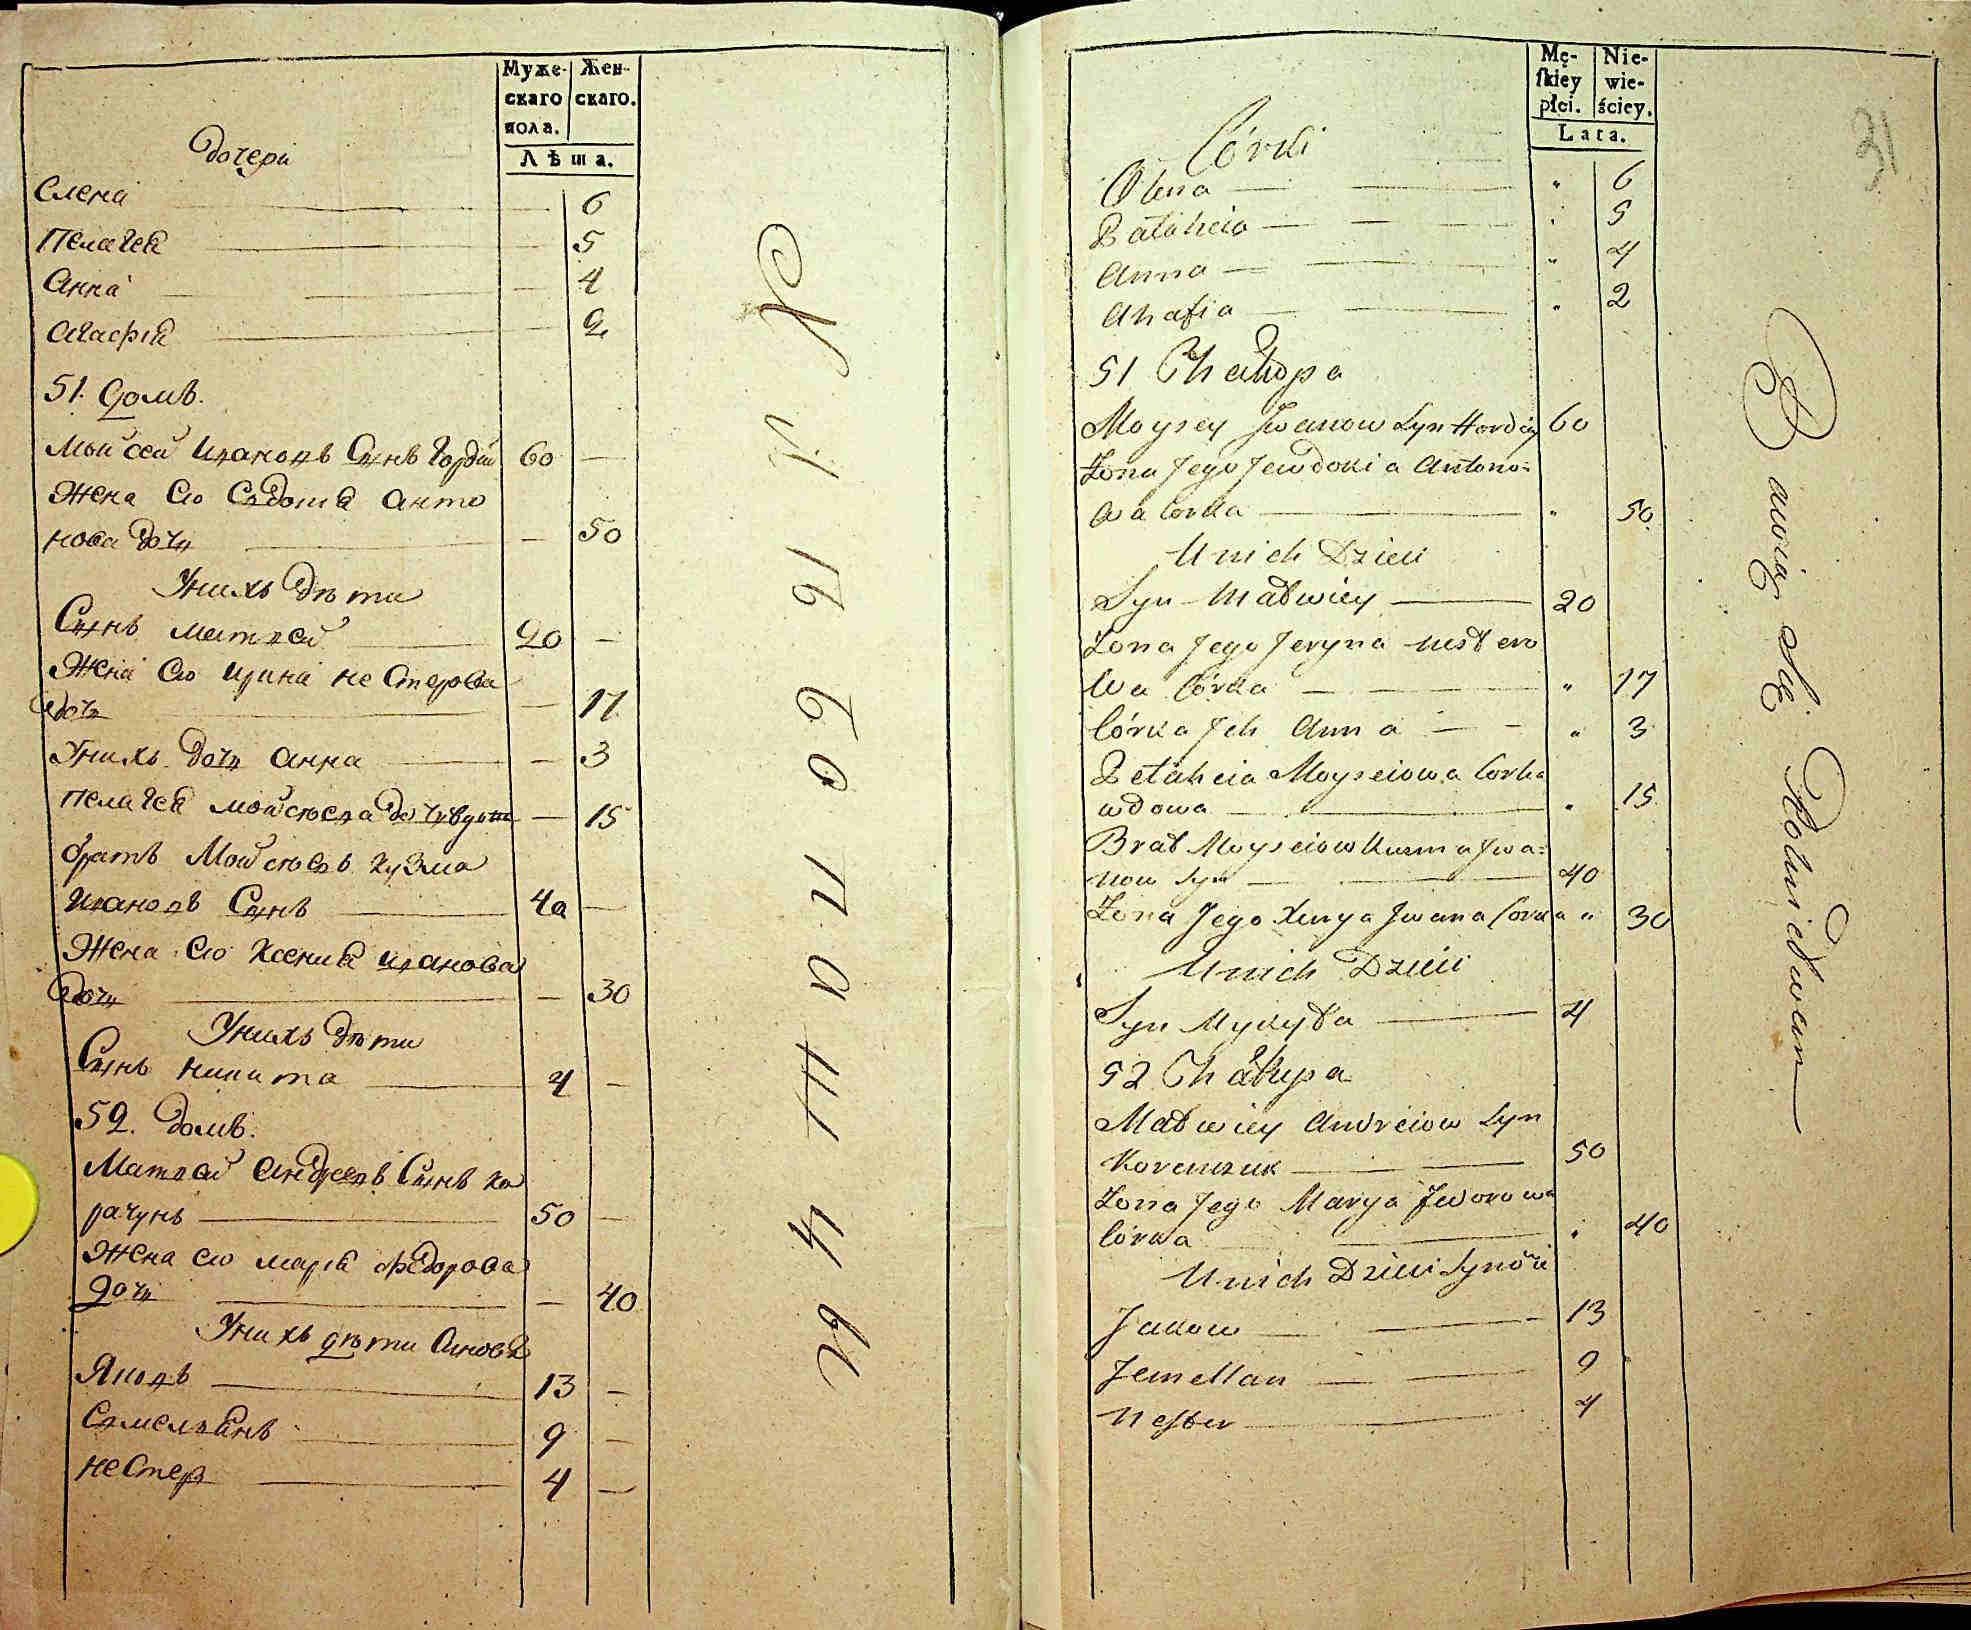 Муже-
скаго
пола.
Жен-
скаго.
Лѣта.
дочери
Елена 6
Пелагея 5
Анна 4
Агафія 2
51. Домъ.
Мойсей Ивановъ Сынъ Гордій 60 —
Жена Его Евдокія Анто
нова дочь — 50
У нихъ дѣти
Сынъ Матвей 20 —
Жена Его Ирина Нестерова
дочь — 17
У нихъ дочь Анна — 3
Пелагея Мойсѣева дочь — 15
братъ Мойсѣевъ Кузма
Ивановъ Сынъ 40 —
Жена Его Ксения Иванова
дочь — 30
У нихъ дѣти
Сынъ Никита 4 —
52. домъ.
Матвей Андреевъ Сынъ Ка
рачунъ 50 —
Жена его Марія Федорова
дочь — 40
У нихъ дѣти Синовя
Яковъ 13 —
Емельянъ 9 —
Нестер 4 —
Mę-
skiey
płci.
Nie-
wie-
ściey.
Lata.
31
Córki
Olena " 6
Pałahcia " 5
Anna " 4
Ahafia " 2
51 Chałupa
Moysey Jwanow Syn Hordiy 60
Żona Jego Jewdokia Antono=
wa Corka " 50
U nich Dzieci
Syn Matwiey 20
Żona Jego Jeryna Nestero
wa Córka " 17
Córka Jch Anna " 3
Pełahcia Moyseiowa Corka
wdowa " 15
Brat Moyseiow Kuzma Jwa=
now Syn 40
Żona Jego Xenya Jwana Corka " 30
U nich Dzieci
Syn Mykyta 4
52 Chałupa
Matwiey Andreiow Syn
50
Żona Jego Marya
Córka " 40
U nich Dzieci Synówi
Jakow 13
Jemellan 9
Nester 4